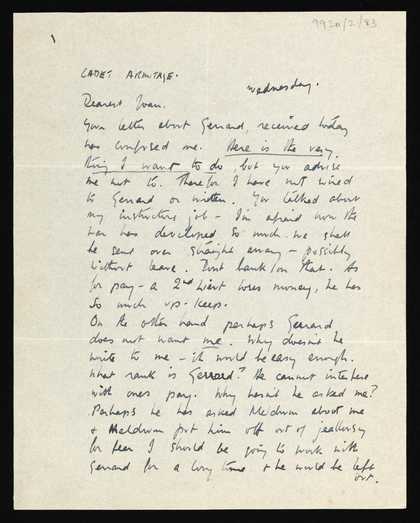 9920/2/83
CADET ARMITAGE.
Wednesday.
Dearest Joan.
Your letter about Gerrard, received today
has confused me. Here is the very
thing I want to do, but you advise
me not to. Therefor I have not wired
to Gerrard or written. You talked about
my instructing job - I'm afraid now the
war has developed so much we shall
be sent over straight away - possibly
without leave. Dont bank on that. As
for pay - a 2nd Lieut loses money, he has
so much up-keep.
On the other hand perhaps Gerrard
does not want me. Why doesn't he
write to me - it would be easy enough.
What rank is Gerrard? He cannot interfere
with ones pay. Why hasnt he asked me?
Perhaps he has asked Meldrum about me
& Meldrum put him off out of jealousy
for fear I should be going to work with
Gerrard for a long time & he would be left
out.